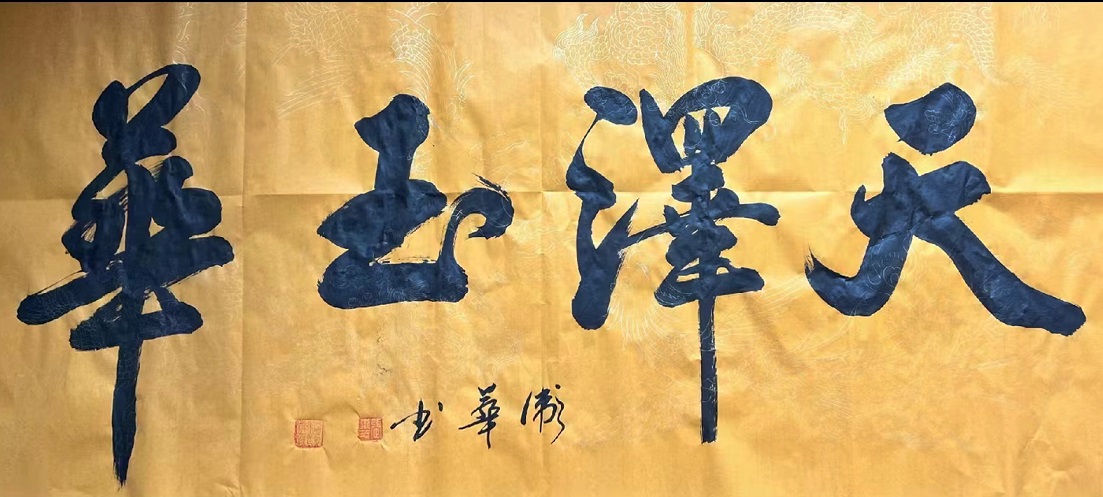 天澤玉華
衛華书